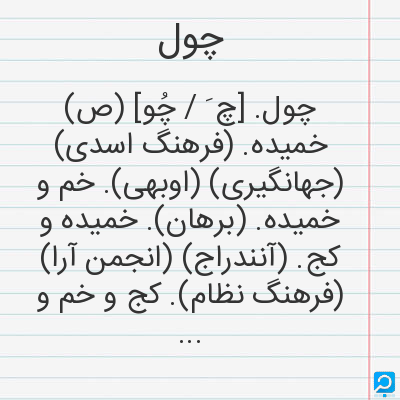 چول
چول. [چ َ / چُو] (ص)
خمیده. (فرهنگ اسدی)
(جهانگیری) (اوبهی). خم و
خمیده. (برهان). خمیده و
کج. (آنندراج) (انجمن آرا)
(فرهنگ نظام). کج و خم و
...